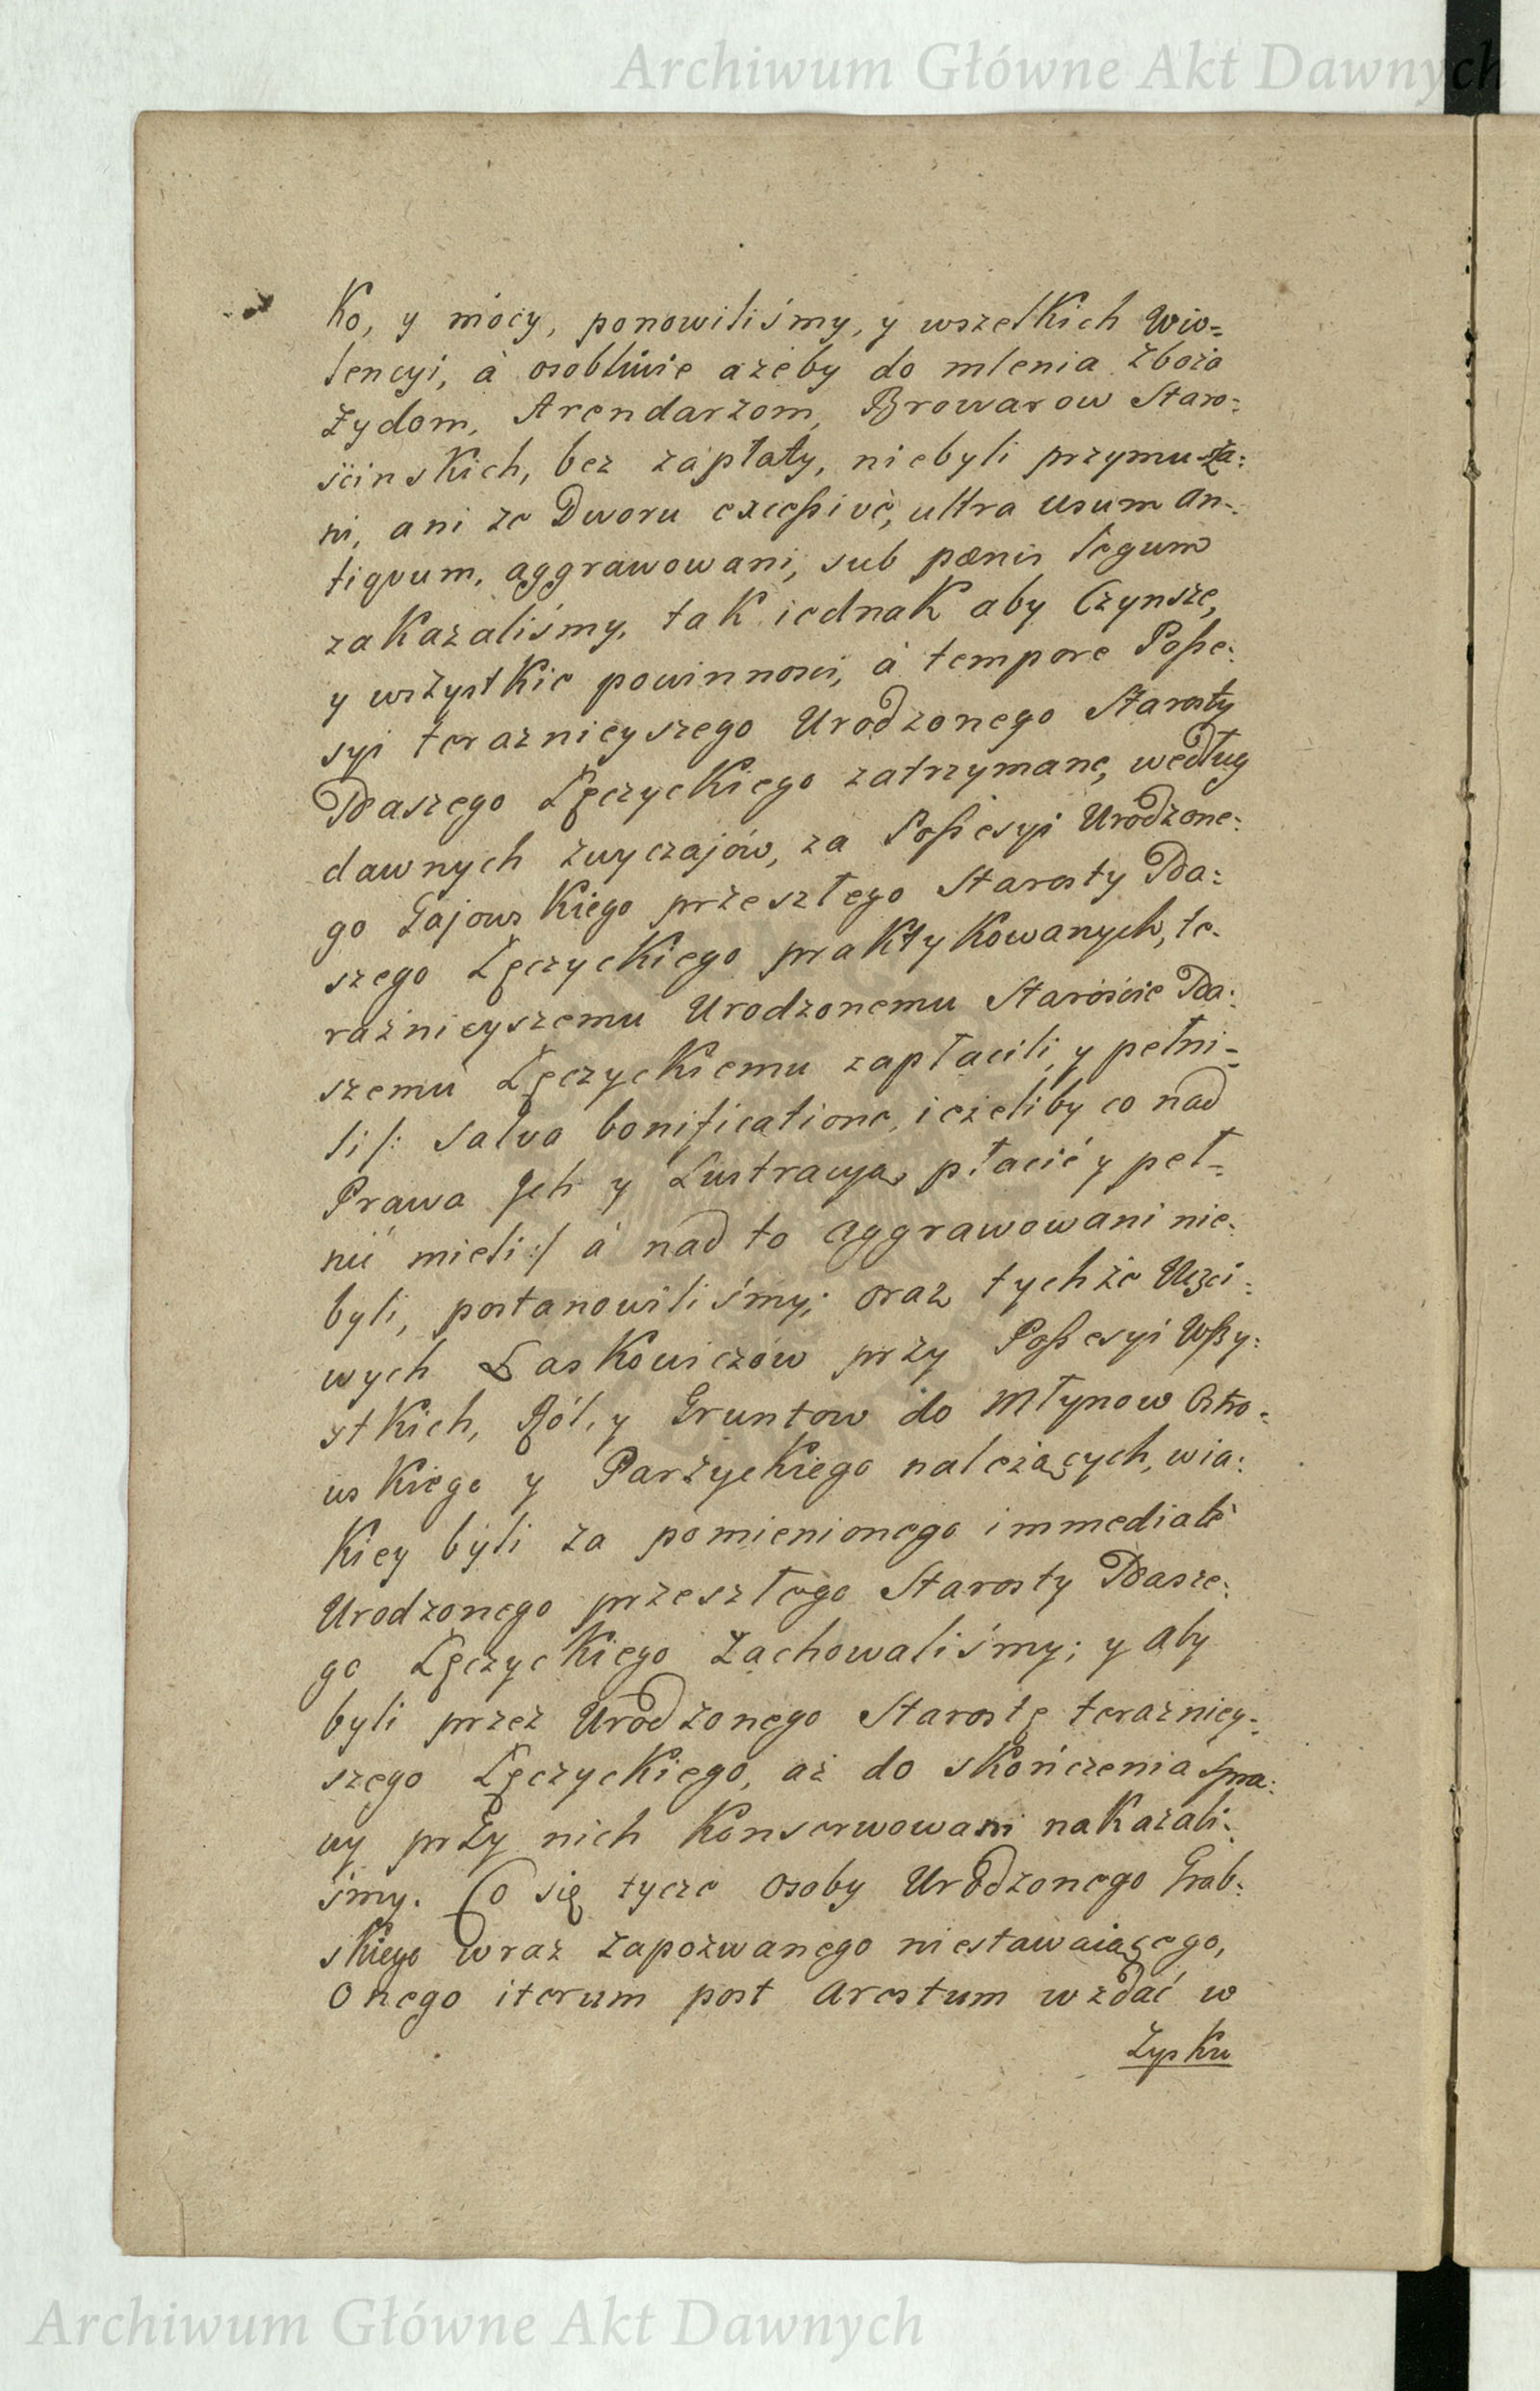 Archiwum Główne Akt Dawnych
Ko, y mocy, ponowiliśmy, y wszelkich Wio=
lencyi, à osobliwie ażeby do mlenia Zboża
Żydom, Arendarzom, Browarow Staro=
ścinskich, bez zapłaty, niebyli przymusza=
ni, ani ze Dworu excessivè, ultra usum an=
tiquum, aggrawowani, sub pænis legum
zakazaliśmy, tak iednak aby Czynsze,
y wszystkie powinnosci, à tempore Posse=
syi teraznieyszego Urodzonego Starosty
Naszego Łęczyckiego zatrzymane, według
dawnych zwyczajów, za Possesyi Urodzone=
go Gajowskiego przeszłego Starosty Na=
szego Łęczyckiego praktykowanych, te=
raźnieyszemu Urodzonemu Staroście Na=
szemu Łęczyckiemu zapłacili, y pełni=
li /: salva bonificatione, ieżeliby co nad
Prawa Jch y Lustracyą płacić y peł=
nić mieli :/ à nad to aggrawowani nie=
byli, postanowiliśmy; oraz tychże Uczci=
wych Laskowiczów przy Possesyi Wszy=
stkich, Ról, y Gruntow do Młynow
wskiego y Parzyckiego należących, wia=
Kiey byli za pomienionego immediatè
Urodzonego przeszłego Starosty Nasze=
go Łęczyckiego Zachowaliśmy; y aby
byli przez Urodzonego Starostę teraźniey=
szego Łęczyckiego, aż do skończenia spra=
wy przy nich Konserwowani nakazali=
śmy. Co się tycze Osoby Urodzonego Grab=
skiego wraz zapozwanego niestawaiącego,
Onego iterum post arestum wzdać w
Zysku
Archiwum Główne Akt Dawnych